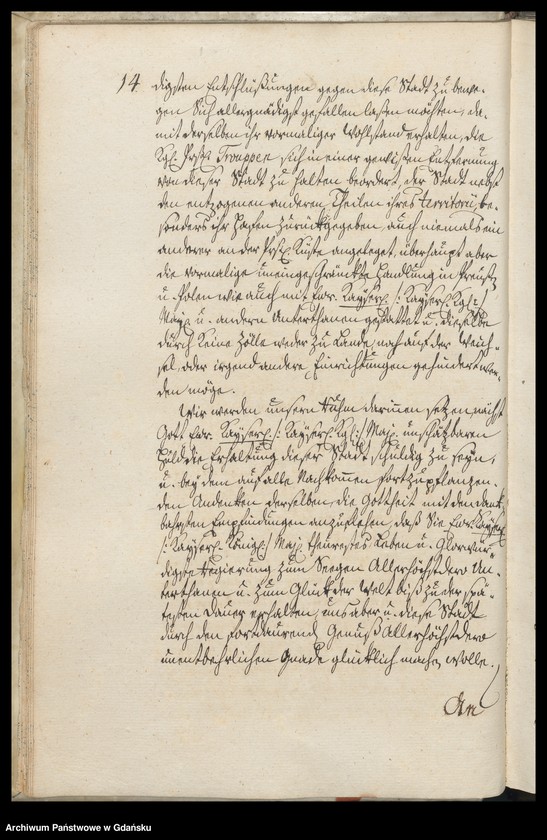 14. digsten Entschlüßungen gegen diese Stadt zu bewe-
gen Sich allergnädigst gefallen laßen möchten, da-
mit derselben ihr vormaliger Wohlstand erhalten, die
Kgl. Prßl. Trouppen sich in einer gewißen Entfernung
von dieser Stadt zu halten beordert, der Stadt nebst
den entzogenen anderen Theilen ihres Territorii, be-
sonders ihr Hafen zurückgegeben, auch niemals ein
anderer an der Prßl. Küste angeleget, überhaupt aber
die vormalige uneingeschränckte Handlung in Preußen
u. Polen wie auch mit Ewr. Kayserl. /: Kayserl. Kgl: /
Maj. u. andern Unterthanen gestattet u. dieselbe
durch keine Zölle weder zu Lande, noch auf der Weich-
sel, oder irgend andere Einrichtungen gehindert wer-
den möge.
Wir werden unsern Ruhm darinnen setzen nächst
Gott Ewr. Kayserl. /: Kayserl. Kgl: / Maj. unschätzbaren
Huld die Erhaltung dieser Stadt schuldig zu seyn,
u. bey dem auf alle Nachkommen fortzupflanzen-
den Andenken derselben, die Gottheit mit den dank-
bahrsten Empfindungen anzuflehen, daß Sie Ewr. Kayserl.
/: Kayserl. Königl: / Maj. theurestes Leben u. Glorwür-
digste Regierung zum Seegen Allerhöchstdero Un-
terthanen u. zum Glück der Welt biß zu der spä-
testen Dauer erhalten, uns aber u. diese Stadt
durch den fortdaurend Genuß Allerhöchstdero
unentbehrlichen Gnade glücklich machen wolle.
An
Archiwum Państwowe w Gdańsku